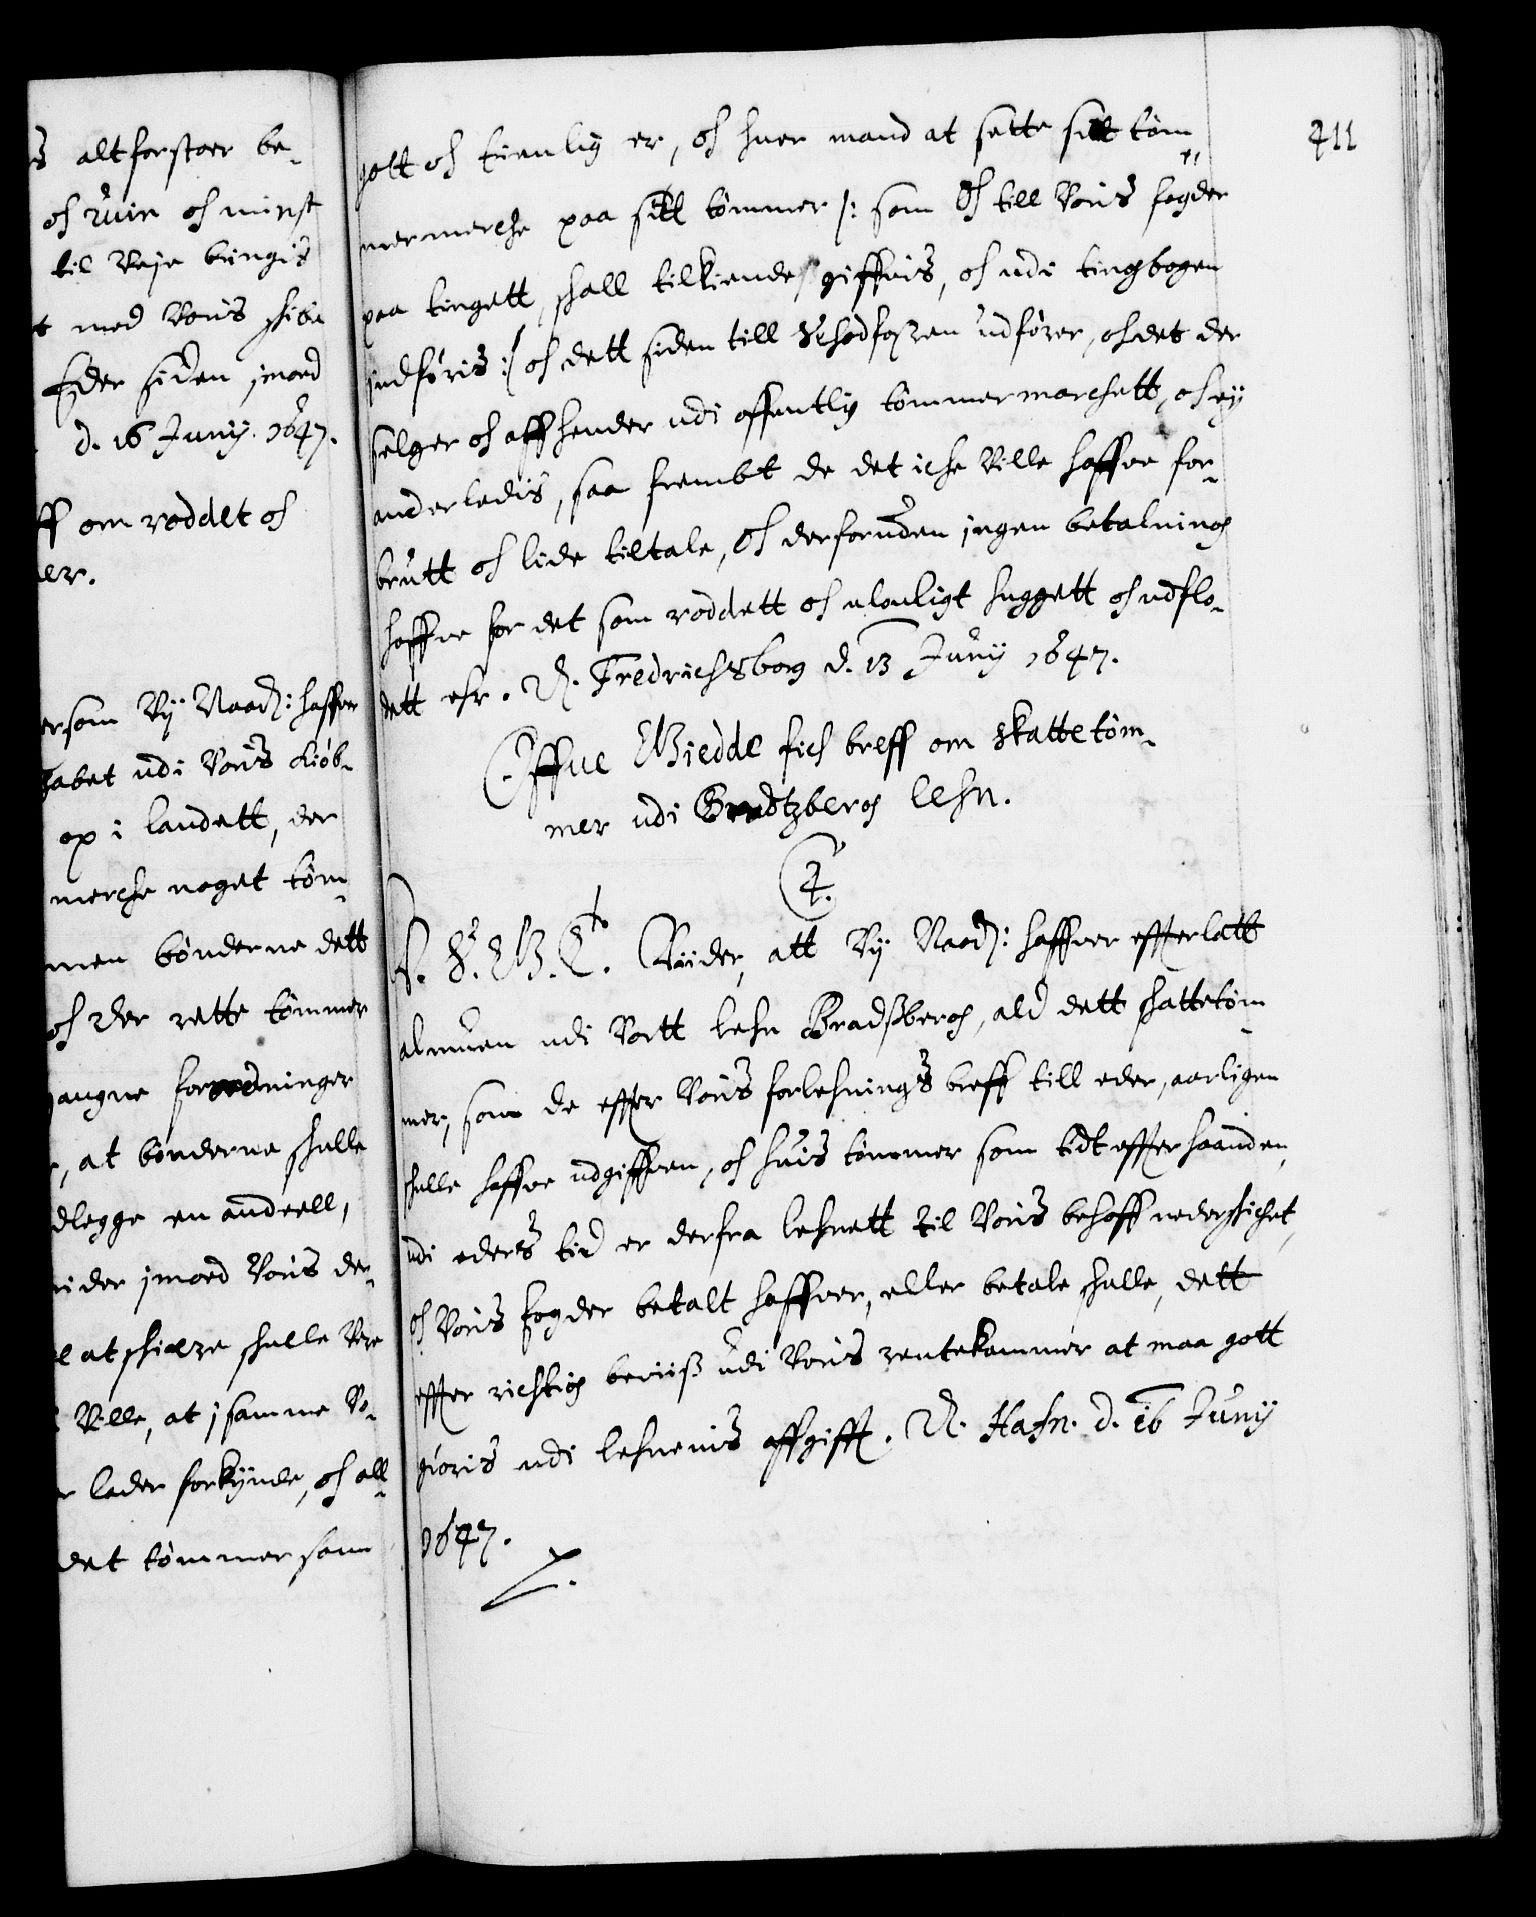 411
altforstaer be-
och ruin och minst
til Veje bringis
med Voris skibe
Eder siden imoed
d. 16 Junij 1647.
ff om roddet och
er.
ersom Vij Naad: haffr
kabet udi Voris Kiøb-
op i landett, der
merche noget tøm-
men bønderne dett
och der rette tømmer
gangne forordninger
at bønderne skulle
dlegge en andeell,
rider imoed Voris der-
l at skieere skulle Vere
Ville, at i samme Vo-
r lader forkynde, och all
det tømmer som
gott och tienlig er, och huer mand at sette sitt tøm-
mermerche paa sitt tømmer /: som och till Voris fogder
paa tingett, skall tilkiende giffuis, och udi tingbogen
indføris :/ och dett siden till Schodfossen udfører, och det der
selger och affhender udi offentlig tømmermarchett, och ej
anderledis, saa frembt de det iche Ville haffue for-
brutt och lide tiltale, och derforuden ingen betalning
haffue for det som roddett och ulouligt huggett och udflo-
dett ehr. D. Fredrichsborg d. 13 Junij 1647.
Offue Giedde fich breff om skattetøm-
mer udi Bradtzberg lehn.
4.
C. 4. G. T. Viider, att Vij Naad: haffuer effterlatt
almuen udi Vortt lehn Bradsberg, ald dett skattetøm-
mer, som de effter Voris forlehnings breff till eder, aarligen
skulle haffue udgiffuen, och huis tømmer som tidt effter haanden,
udi eders tid er derfra lehnett til Voris behoff nederskichet,
och Voris fogder betalt haffuer, eller betale skulle, dett
effter richtig beviiss udi Voris rentekammer at maa gott
giøris udi lehnens affgifft. D. Hafn. d. 16 Junij
1647.